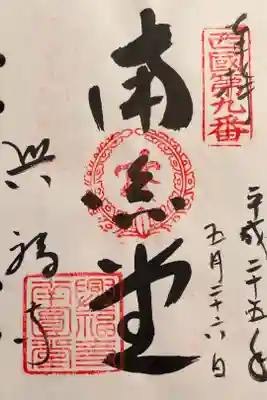 奉拝
西國第九番
平成二十五年
五月二十六日
南圓堂
興福寺
興福寺
南圓堂